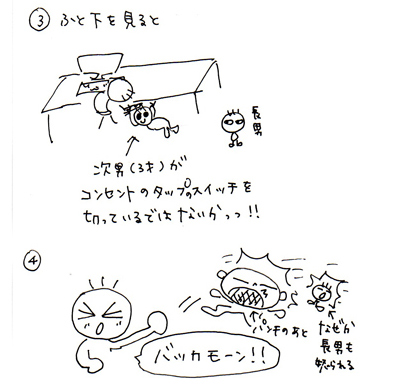 ③ ふと下を見ると
長男
次男(3才)が
コンセントのタップのスイッチを
切っているではないかっっ!!
④
パンチのあと
なぜか
長男も
怒られる
バッカモーン!!